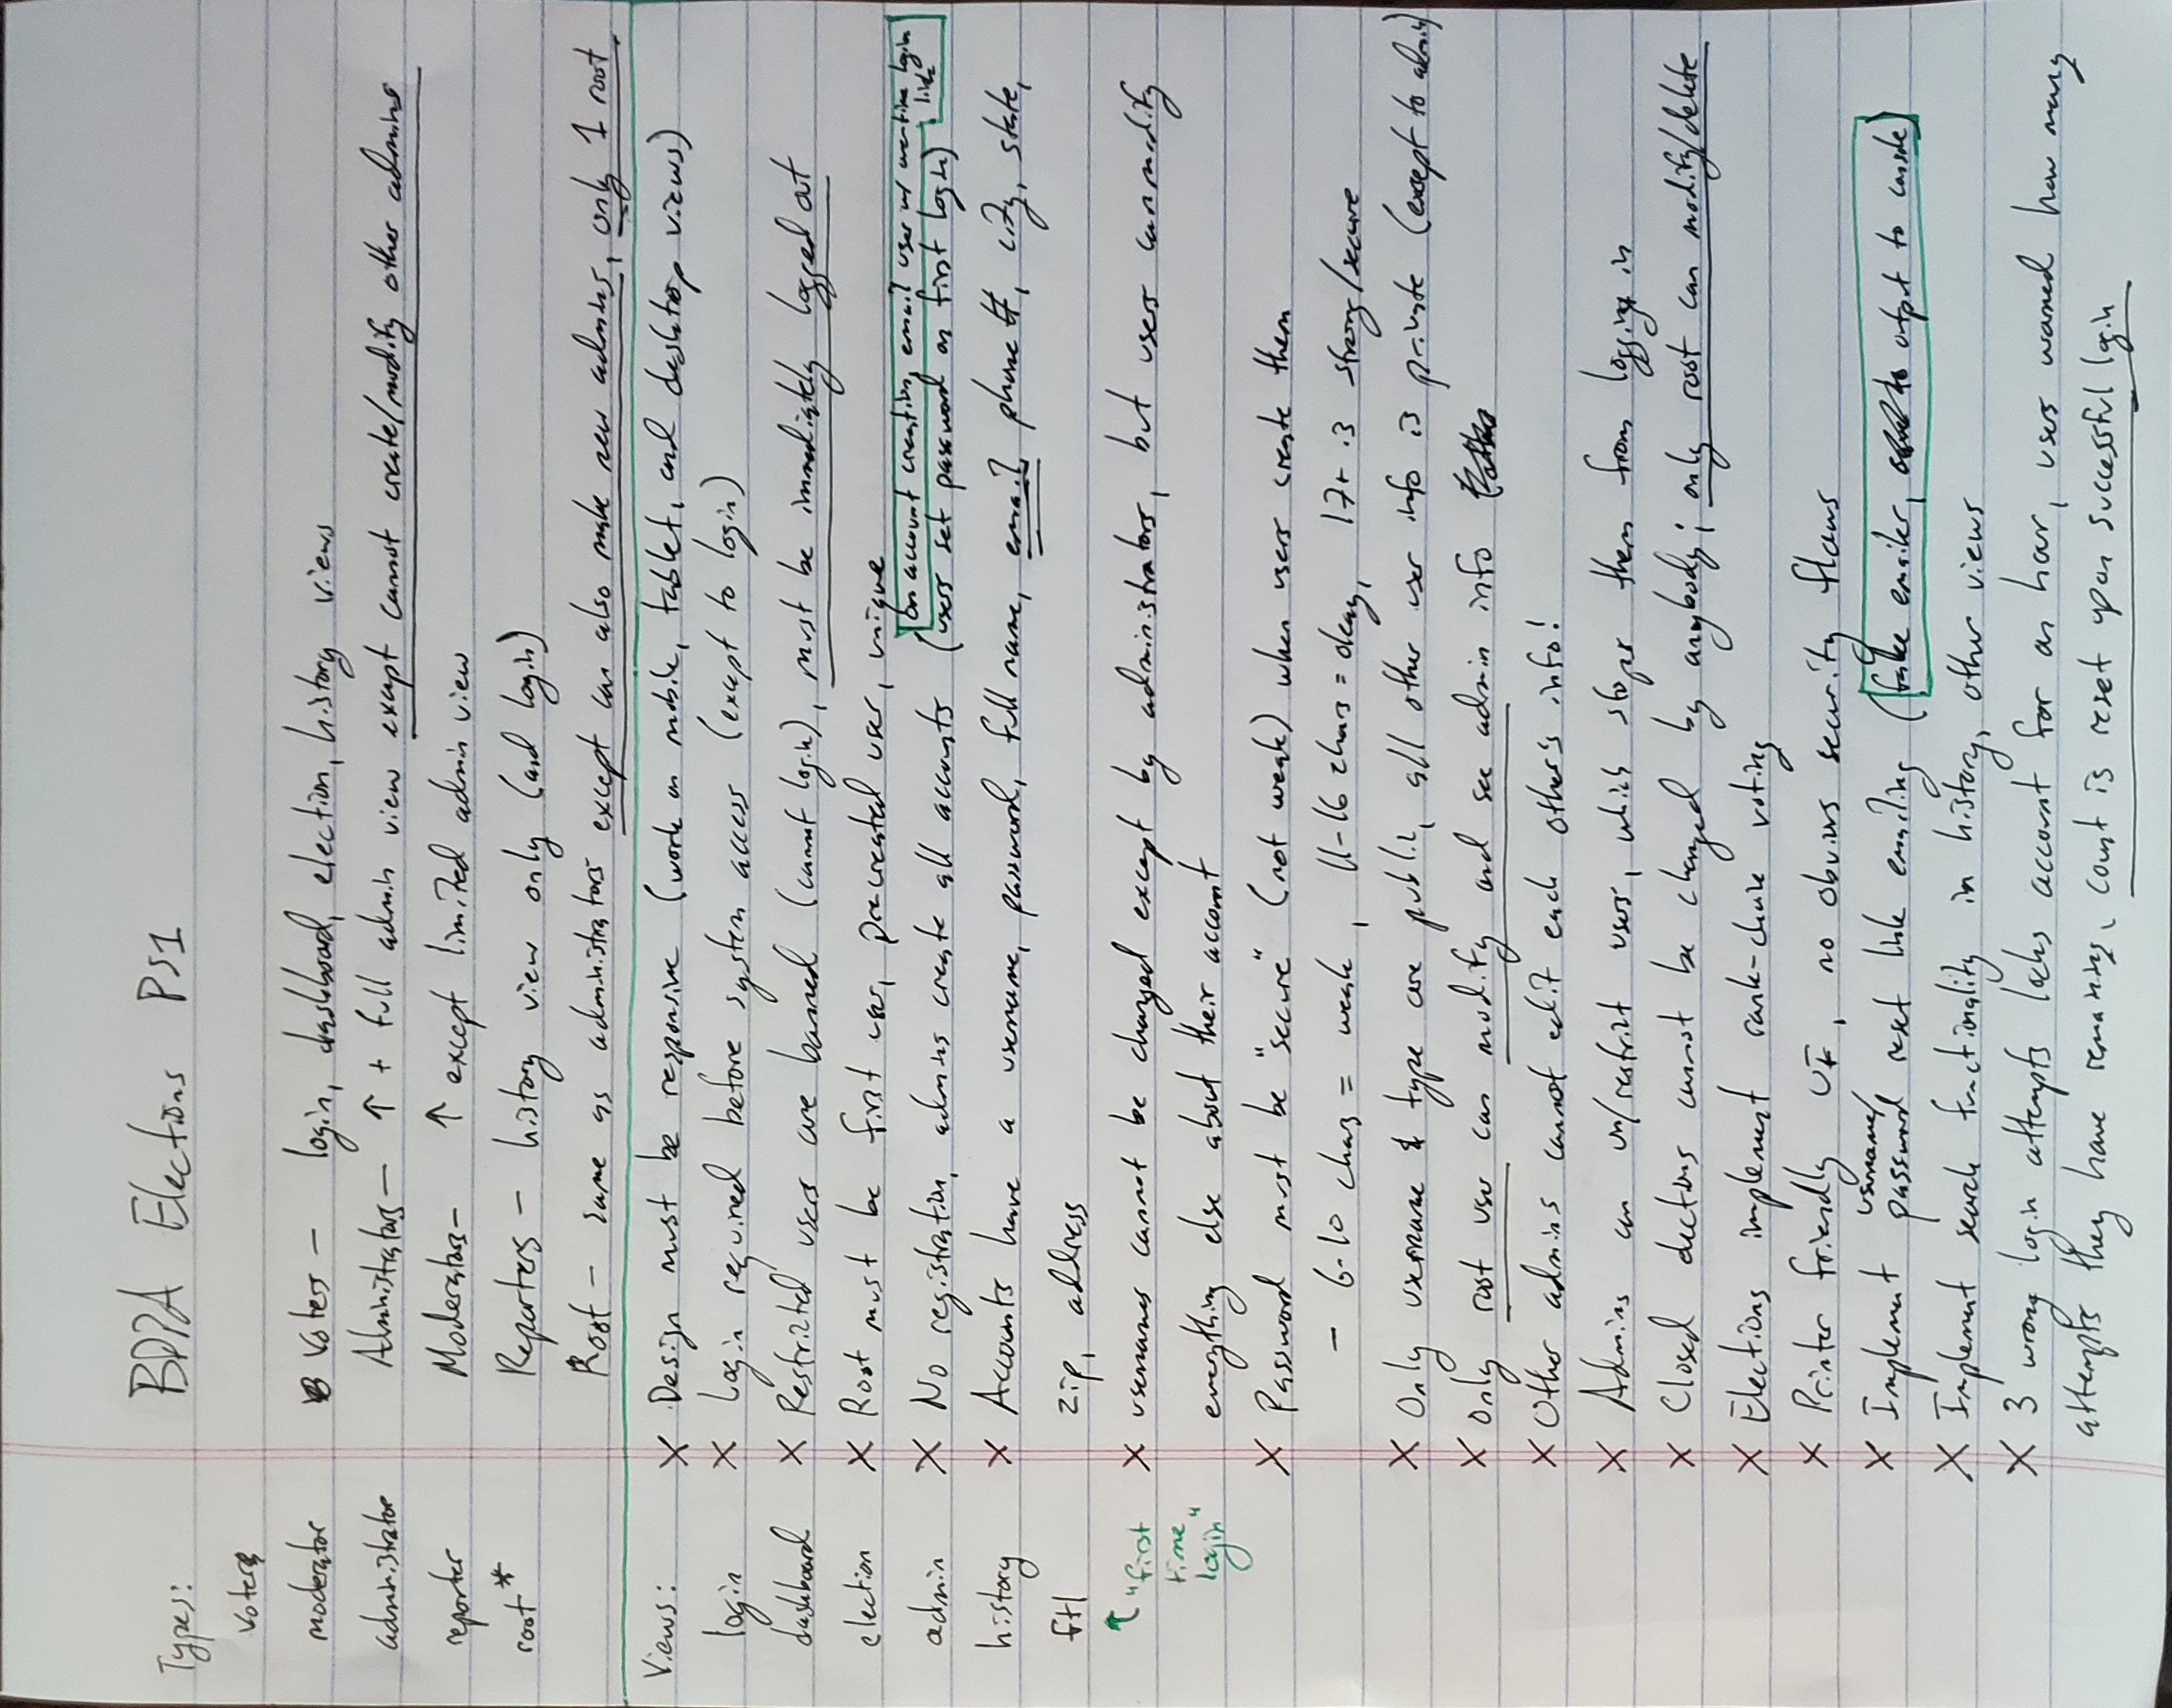 BDPA Elections PS1
Types:
voter
moderator
administrator
reporter
root*
Voters – login, dashboard, election, history views
Administrators – ↑ + full admin view except cannot create/modify other admins
Moderators – ↑ except limited admin view
Reporters – history view only (and login)
Root – same as administrators except can also make new admins, only 1 root
Views:
login
dashboard
election
admin
history
ftl
↑ "first
time
login"
X Design must be responsive (work on mobile, tablet, and desktop views)
X Login required before system access (except to login)
X Restricted users are banned (cannot login), must be immediately logged out
X Root must be first user, precreated user, unique
on account creation, email user w/ onetime login
link
X No registration, admins create all accounts (users set password on first login)
X Accounts have a username, password, full name, email, phone #, city, state,
zip, address
X usernames cannot be changed except by administrators, but users can modify
everything else about their account
X Password must be "secure" (not weak) when users create them
– 6-10 chars = weak, 11-16 chars = okay, 17+ is strong/secure
X Only username & type are public, all other user info is private (except to admin)
X Only root user can modify and see admin info
X Other admins cannot edit each other's info!
X Admins can un/restrict users, which stops them from logging in
X Closed elections cannot be changed by anybody; only root can modify/delete
X Elections implement rank-choice voting
X Printer friendly UI, no obvious security flaws
X Implement username/ password reset link emailing (fake emailer, output to console)
X Implement search functionality in history, other views
X 3 wrong login attempts locks account for an hour, users warned how many
attempts they have remaining, count is reset upon successful login